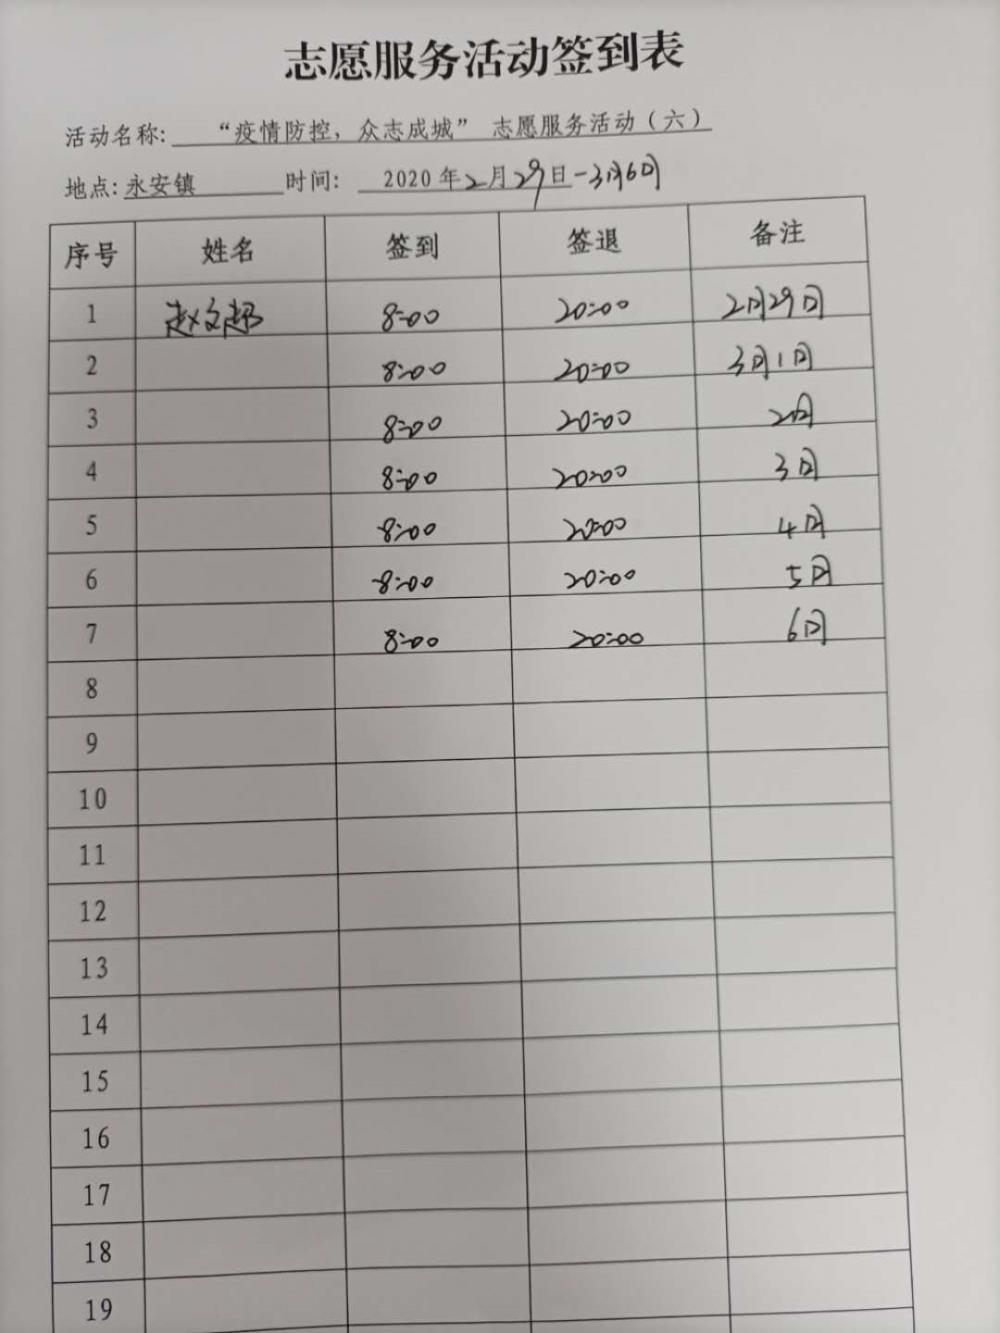 志愿服务活动签到表
活动名称: “疫情防控，众志成城” 志愿服务活动（六）
地点: 永安镇 时间: 2020 年 2 月 29 日 -3月6日
序号 姓名 签到 签退 备注
1 赵文超 8:00 20:00 2月29日
2 8:00 20:00 3月1日
3 8:00 20:00 2日
4 8:00 20:00 3日
5 8:00 20:00 4日
6 8:00 20:00 5日
7 8:00 20:00 6日
8
9
10
11
12
13
14
15
16
17
18
19